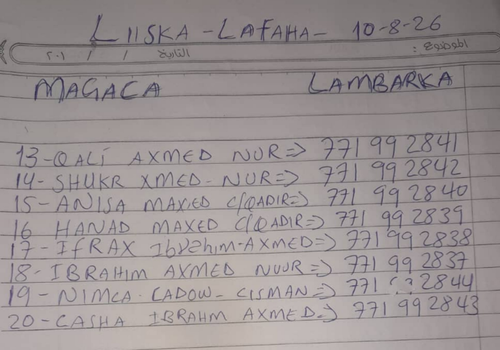 LIISKA - LAFAHA - 10-8-26
٢٠١ / / التاريخ الموضوع :
MAGACA LAMBARKA
13-QALI AXMED NUR=> 771 99 2841
14-SHUKR XMED-NUR=> 771 99 2842
15-ANISA MAXED C/QADIR=> 771 99 2840
16 HANAD MAXED C/QADIR=> 771 99 2839
17-IFRAX Ibrehim-AXMED=> 771 99 2838
18-IBRAHIM AXMED NUUR=> 771 99 2837
19-NIMCA-CADOW-CISMAN=> 771 ?? 2844
20-CASHA IBRAHM AXMED=> 771 99 2843